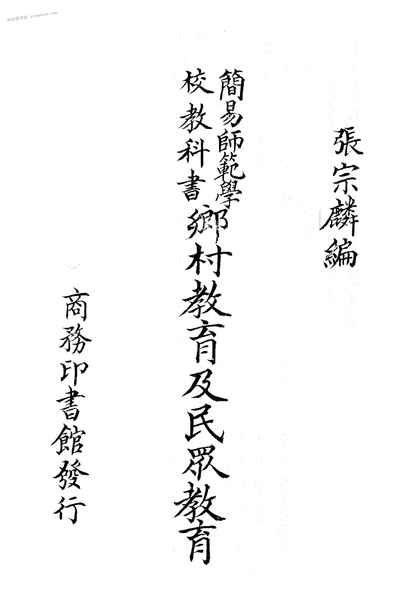 張宗麟編
簡易師範學
校教科書
鄉村教育及民眾教育
商務印書館發行